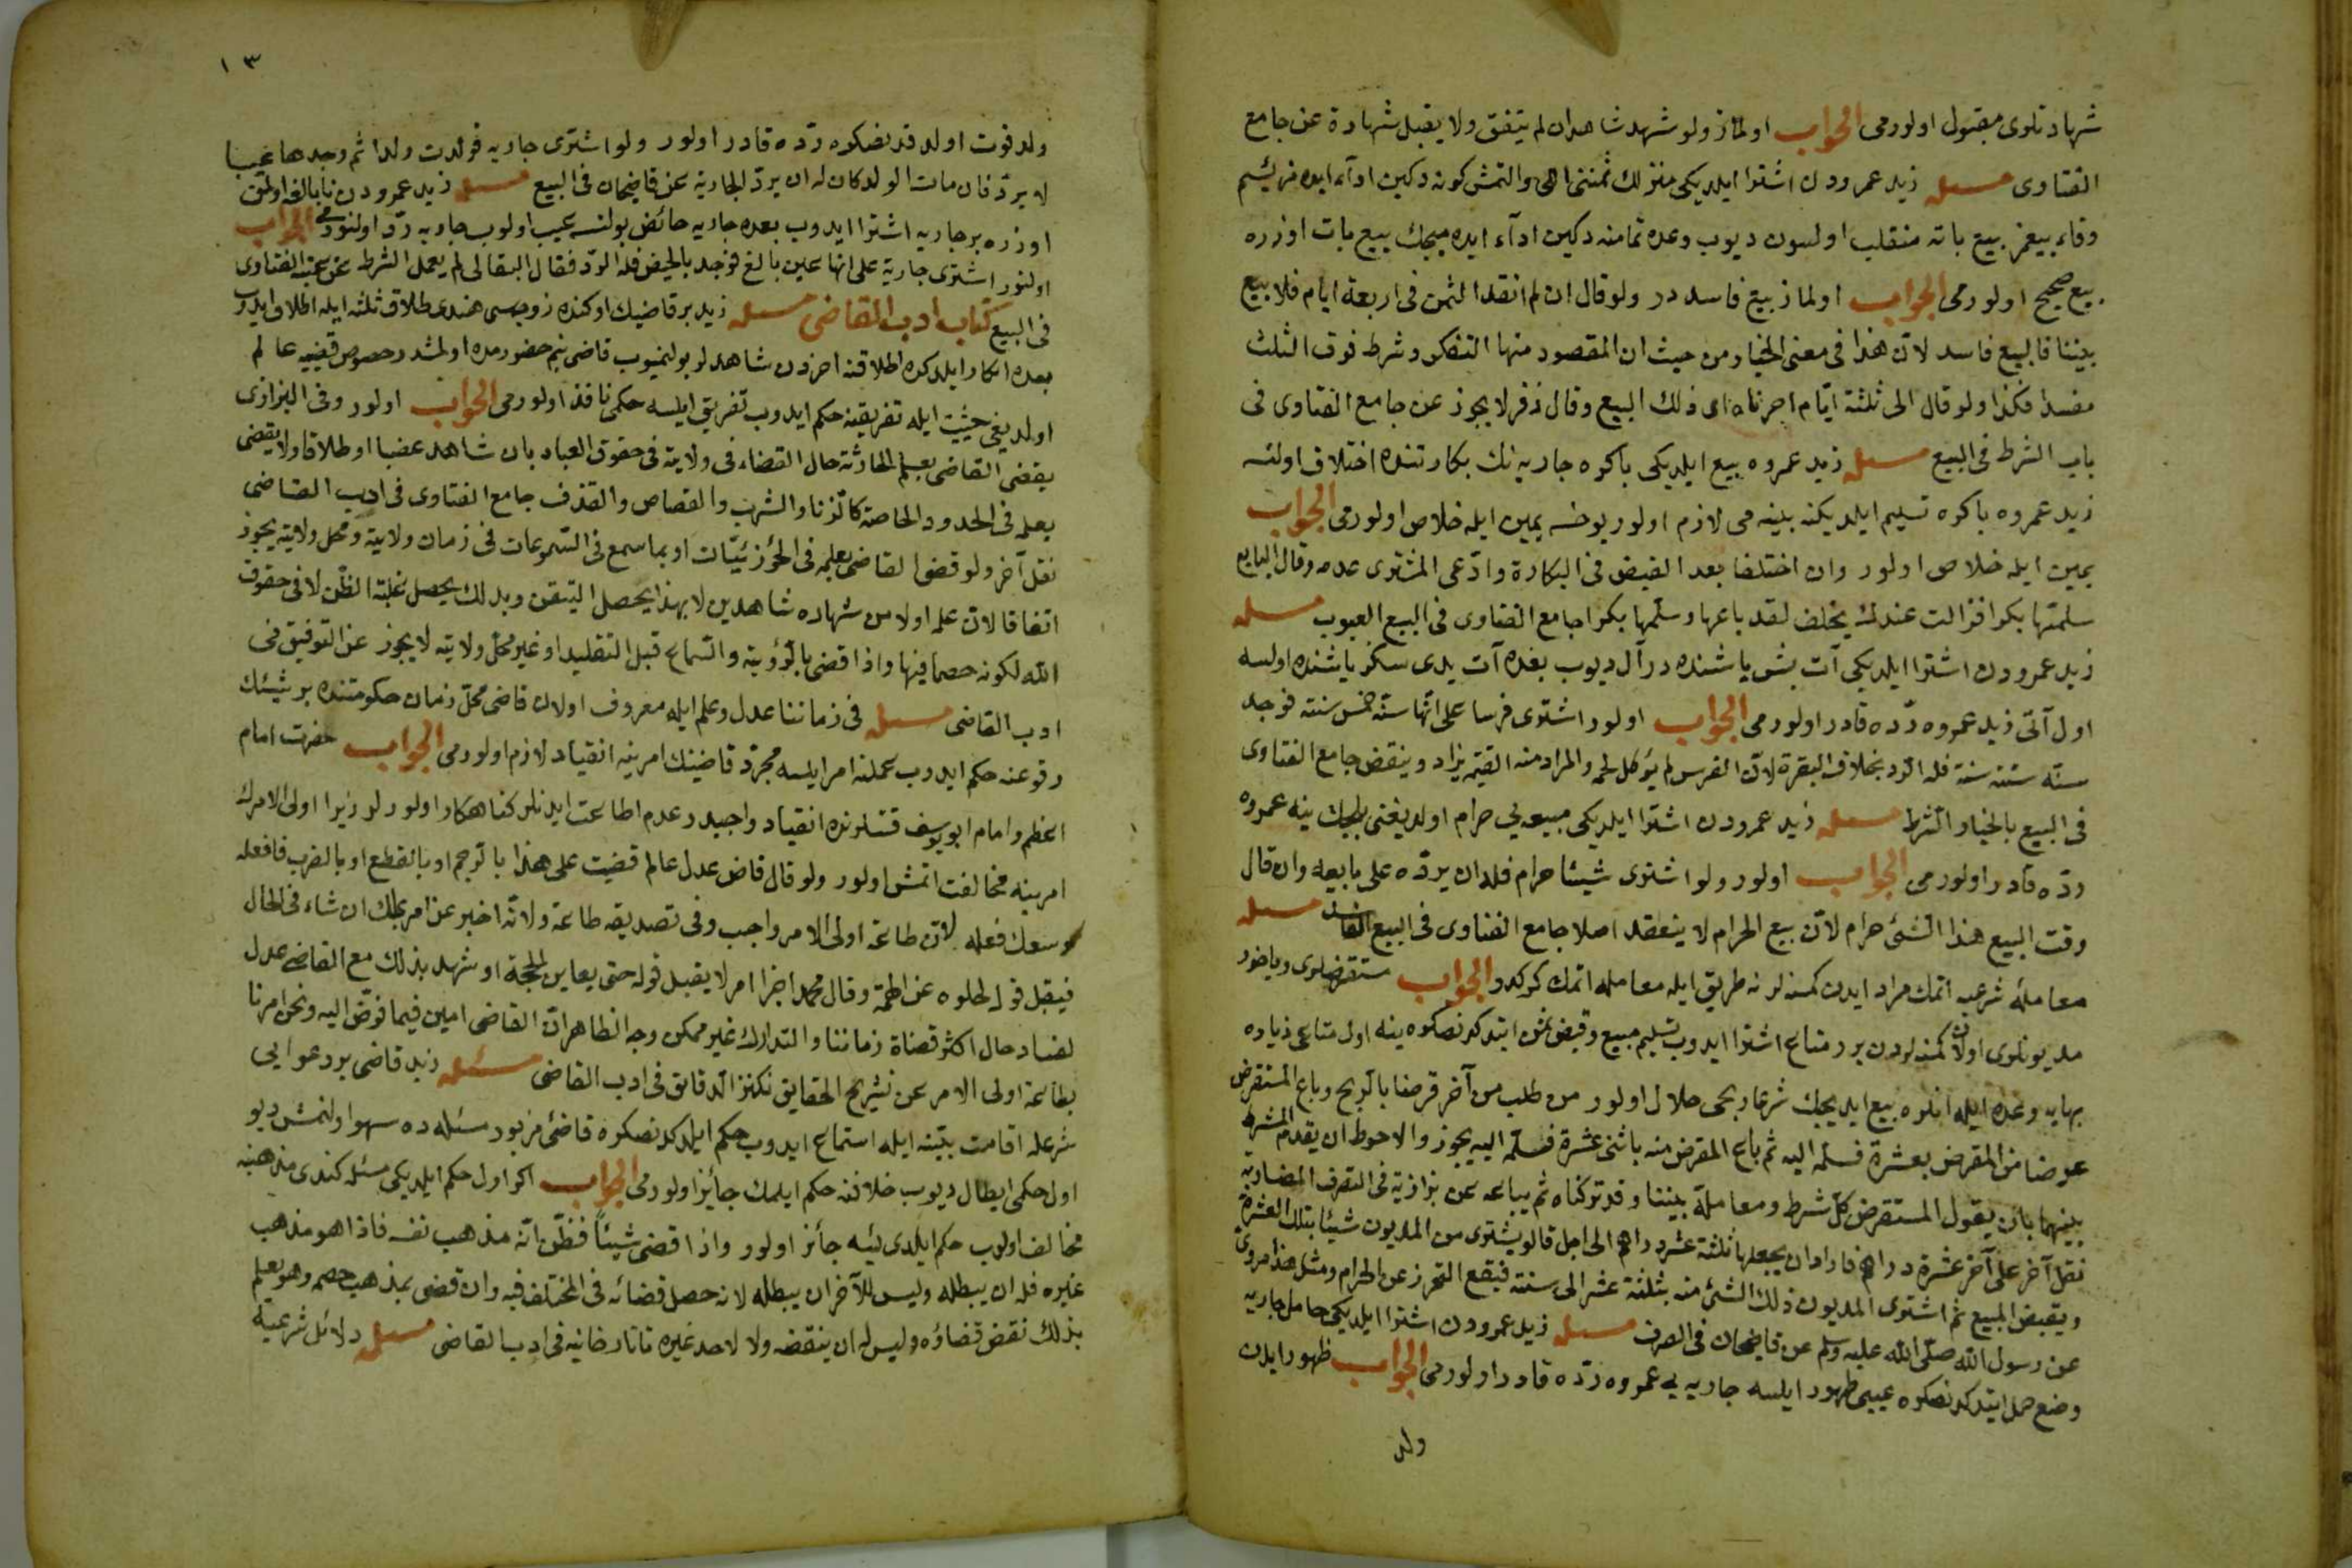 شهادتلری مقبول اولورمی الجواب اولماز ولو شهد شاهدان لم يتفق ولا يقبل شهادة عن جامع
الفتاوى مسئله زيد عمرودن اشترا ايلديكى منزلك ثمننى الى والتمش كونه دكين ادآء ايده مزيسم
وفاء بيعمز بيع باته منقلب اولسون ديوب وعده تمامنه دكين ادآء ايده ميجك بيع بات اوزره
بيع صحيح اولورمى الجواب اولماز بيع فاسددر ولو قال ان لم انقد الثمن فى اربعة ايام فلا بيع
بيننا فالبيع فاسد لان هذا فى معنى الخيار ومن حيث ان المقصود منها التفكر وشرط فوق الثلث
مفسد فكذا ولو قال الى ثلثة ايّام اجزناه اى ذلك البيع وقال زفر لا يجوز عن جامع الفتاوى فى
باب الشرط فى البيع مسئله زيد عمروه بيع ايلديكى باكره جاريه نك بكارتنده اختلاف اولنسه
زيد عمروه باكره تسليم ايلديكنه بينه مى لازم اولور يوخسه يمين ايله خلاص اولورمى الجواب
يمين ايله خلاص اولور وان اختلفا بعد القبض فى البكارة وادّعى المشترى عدمه وقال البايع
سلمتها بكرا فزالت عندك يحلف لقد باعها وسلّمها بكرا جامع الفتاوى فى البيع العيوب مسئله
زيد عمرودن اشترا ايلديكى آت بش ياشنده در آل ديوب بعده آت يدى سكز ياشنده اولسه
اول آتى زيد عمروه ردّه قادر اولورمى الجواب اولور اشترى فرسا على انّها سنّه خمس سنته فوجد
سنّه ستّة سنة فله الرد بخلاف البقرة لانّ الفرس لم يؤكل لحمه والمراد منه القيمة يزاد وينقض جامع الفتاوى
فى البيع بالخيار الشرط مسئله زيد عمرودن اشترا ايلديكى مبيعه يى حرام اولديغنى بلجك ينه عمروه
ردّه قادر اولورمى الجواب اولور ولو اشترى شيئا حرام فله ان يردّه على بايعه وان قال
وقت البيع هذا الشئ حرام لانّ بيع الحرام لا ينعقد اصلا جامع الفتاوى فى البيع الفاسد مسئله
معاملۀ شرعيه اتمك مراد ايدن كمسنه لر نه طريق ايله معامله اتمك كركدر الجواب مستقرضلرى وياخود
مديونلرى اولان كمسنه لردن بر متاع اشترا ايدوب تسليم مبيع وقبض ثمن ايتدكدنصكره ينه اول متاعى زياده
بهايه وعده ايله انلره بيع ايديجك شرعا ربحى حلال اولور من طلب من آخر قرضا بالربح وباع المستقرض
عوضا من المقرض بعشرة فسلّمه اليه ثم باع المقرض منه باثنى عشرة فسلّمه اليه يجوز والاحوط ان يقدم المشرط
بينهما بان يقول المستقرض كلّ شرط ومعاملة بيننا وقد تركناه ثم يباعه عن بزازية فى التصرف المضاربة
نقل آخر على آخر عشرة دراهم فاراد ان يجعلها ثلثة عشر دراهم الى اجل قالو يشترى من المديون شيئا بتلك العشرة
ويقبض المبيع ثم اشترى المديون ذلك الشئ منه بثلثة عشر الى سنة فيقع التحرز عن الحرام ومثل هذا مروى
عن رسول الله صلّى الله عليه وسلم عن قاضيخان فى الصرف مسئله زيد عمرودن اشترا ايلديكى حامل جاريه
وضع حمل ايتدكدنصكره عيبى ظهور ايلسه جاريه يى عمروه ردّه قادر اولورمى الجواب ظهور ايدن
ولد
١٣
ولد فوت اولدقدنصكره ردّه قادر اولور ولو اشترى جاريه فولدت ولدا ثم وجدها عيبا
لا يردّ فان مات الولد كان له ان يردّ الجارية عن قاضيخان فى البيع مسئله زيد عمرودن نابالغه اولمق
اوزره بر جاريه اشترا ايدوب بعده جاريه حائض بولنسه عيب اولوب جاريه ردّ اولنورمى الجواب
اولنور اشترى جارية على انها عين بالغ فوجد بالحيض فله الردّ فقال البقالى لم يعمل الشرط عن منية الفتاوى
فى البيع كتاب ادب القاضى مسئله زيد بر قاضينك اوكنده زوجسى هندى طلاق ثلثه ايله اطلاق ايدوب
بعده انكار ايلدكده اطلاقنه اخردن شاهدلر بولنميوب قاضى بنم حضورمده اولمشدر حصوص قضييه عالم
اولديغى حيثيت ايله تفريقنه حكم ايدوب تفريق ايلسه حكمى نافذ اولورمى الجواب اولور وفى البزازى
يقضى القاضى بعلم الحادثة حال القضاء فى ولاية فى حقوق العباد بان شاهد غصبا او طلاقا ولا يقضى
بعلمه فى الحدود الخاصة كالزنا والشرب والقصاص والقذف جامع الفتاوى فى ادب القاضى
نقل آخر ولو قضى القاضى بعلمه فى الجزئيّات او بما سمع فى السّموعات فى زمان ولايته ومحل ولايته يجوز
اتفاقا لان علمه اولا من شهاده شاهدين لا بهذا يحصل اليتقن وبذلك يحصل غلبة الظن لا فى حقوق
الله لكونه حصما فيها واذا قضى بالرؤية والسّماع قبل التقليد او غير محلّ ولايته لا يجوز عن التوفيق فى
ادب القاضى مسئله فى زماننا عدل وعلم ايله معروف اولان قاضى محلّ زمان حكومتنده بر شيئك
وقوعنه حكم ايدوب عملنه امر ايلسه مجرّد قاضينك امرينه انقياد لازم اولورمى الجواب حضرت امام
اعظم وامام ابو يوسف قتلرنده انقياد واجبدر وعدم اطاعت ايدنلر كناهكار اولورلر زيرا اولى الامرك
امرينه مخالفت اتمش اولور ولو قال قاض عدل عالم قضيت على هذا بالرجم او بالقطع او بالضرب فافعله
وسعك فعله لانّ طاعة اولى الامر واجب وفى تصديقه طاعة ولانّه اخبر عن امر يملك ان شاء فى الحال
فيقبل قوله لخلوه عن الطمة وقال محمد اخرا امر لا يقبل قوله حتى يعاين الحجة او شهد بذلك مع القاضى عدل
لفساد حال اكثر قضاة زماننا والتدارك غير ممكن وجه الظاهر انّ القاضى امين فيما فوّض اليه ونحن امرنا
بطاعة اولى الامر عن تشريح الحقايق نكنز الدقايق فى ادب القاضى مسئله زيد قاضى بر دعوايى
شرعله اقامت بيّنه ايله استماع ايدوب حكم ايلدكدنصكره قاضئ مزبور مسئله ده سهو اولنمش ديو
اول حكمى ابطال ديوب خلافنه حكم ايلمك جائز اولورمى الجواب اكر اول حكم ايلديكى مسئله كندى مذهبنه
مخالف اولوب حكم ايلدى ايسه جائز اولور واذا قضى شيئاً فظّن انّه مذهب نفسه فاذا هو مذهب
غيره فله ان يبطله وليس للآخر ان يبطله لانه حصل قضائه فى المختلف فيه وان قضى بمذهب حصمه وهو يعلم
بذلك نقض قضاؤه وليس له ان ينقضه ولا لاحد غيره تاتارخانيه فى ادب القاضى مسئله دلائل شرعيّه